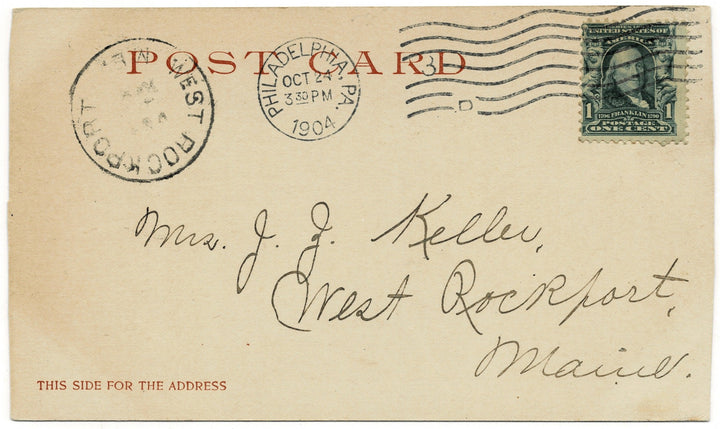 POST CARD
WEST ROCKPORT
PHILADELPHIA, PA.
OCT 24
3 30 PM
1904
3
D
SERIES 1902
UNITED STATES OF
AMERICA
1706 FRANKLIN 1790
1 POSTAGE 1
ONE CENT
Mrs. J. J. Keller,
West Rockport,
Maine.
THIS SIDE FOR THE ADDRESS